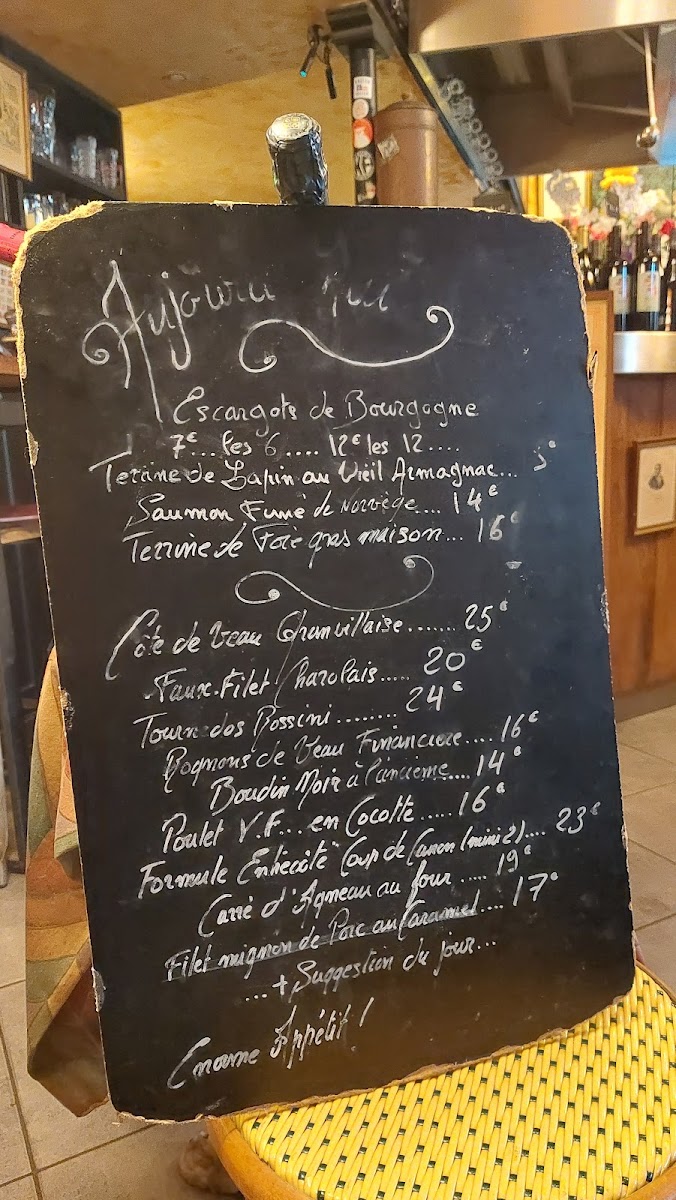 Aujourd'hui
Escargots de Bourgogne
7€... les 6 .... 12€ les 12 ....
Terrine de Lapin au Vieil Armagnac...
Saumon Fumé de Norvège.... 14€
Terrine de Foie gras maison... 16€
Côte de Veau Granvillaise....... 25€
Faux-Filet Charolais..... 20€
Tournedos Rossini ........ 24€
Rognons de Veau Financière.... 16€
Boudin Noir à l'ancienne.... 14€
Poulet V.F... en Cocotte ..... 16€
Formule Entrecôte Coup de Canon (mini 2).... 23€
Carré d'Agneau au four ..... 19€
Filet mignon de Porc au Caramel.... 17€
... + Suggestion du jour...
Enorme Appétit !